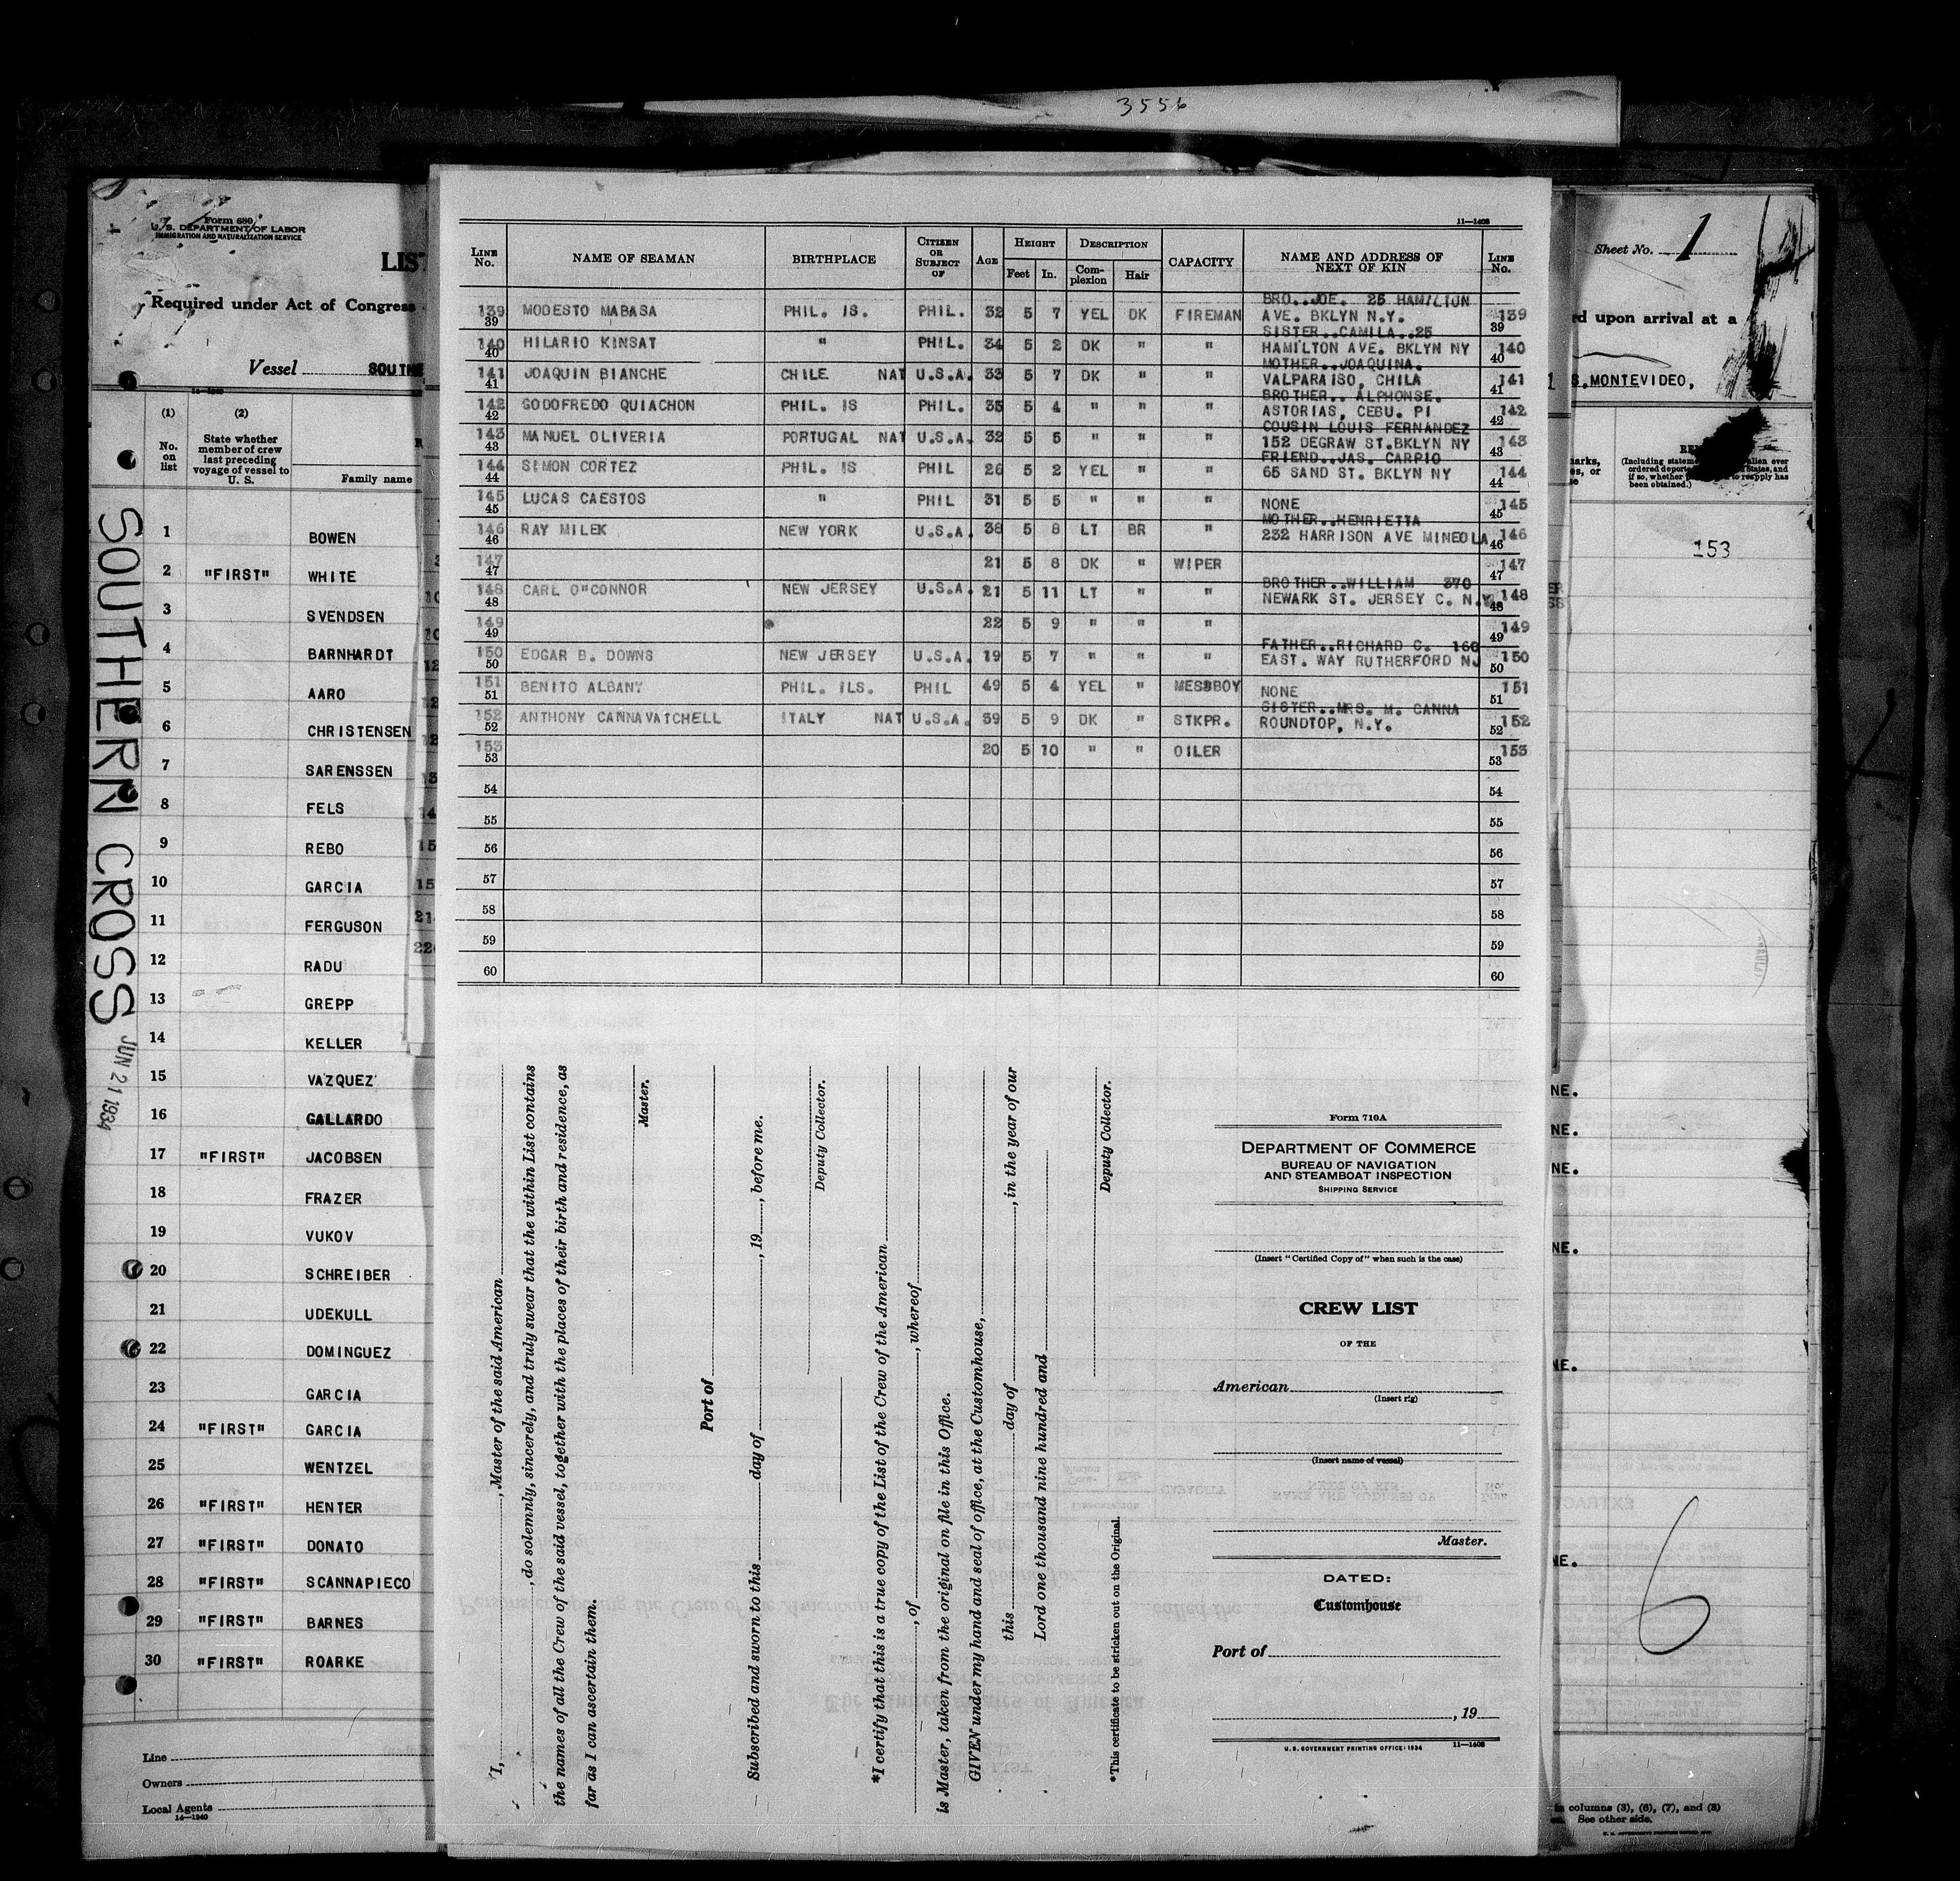 3556
Form 680
U. S. DEPARTMENT OF LABOR
IMMIGRATION AND NATURALIZATION SERVICE
LIST
Required under Act of Congress
Vessel SOUTHE
(1) (2)
No. on list
State whether member of crew last preceding voyage of vessel to U. S.
Family name
SOUTHERN CROSS
JUN 21 1934
1 BOWEN
2 "FIRST" WHITE
3 SVENDSEN
4 BARNHARDT
5 AARO
6 CHRISTENSEN
7 SARENSSEN
8 FELS
9 REBO
10 GARCIA
11 FERGUSON
12 RADU
13 GREPP
14 KELLER
15 VAZQUEZ
16 GALLARDO
17 "FIRST" JACOBSEN
18 FRAZER
19 VUKOV
20 SCHREIBER
21 UDEKULL
22 DOMINGUEZ
23 GARCIA
24 "FIRST" GARCIA
25 WENTZEL
26 "FIRST" HENTER
27 "FIRST" DONATO
28 "FIRST" SCANNAPIECO
29 "FIRST" BARNES
30 "FIRST" ROARKE
Line
Owners
Local Agents
14—1240
11—1408
LINE No. NAME OF SEAMAN BIRTHPLACE CITIZEN OR SUBJECT OF AGE HEIGHT Feet In. DESCRIPTION Complexion Hair CAPACITY NAME AND ADDRESS OF NEXT OF KIN LINE No.
BRO..JOE. 25 HAMILTON
139 39 MODESTO MABASA PHIL. IS. PHIL. 32 5 7 YEL DK FIREMAN AVE. BKLYN N.Y. 139 39
SISTER..CAMILA..25
140 40 HILARIO KINSAT " PHIL. 34 5 2 DK " " HAMILTON AVE. BKLYN NY 140 40
MOTHER..JOAQUINA.
141 41 JOAQUIN BIANCHE CHILE NAT U.S.A. 33 5 7 DK " " VALPARAISO, CHILA 141 41
BROTHER.. ALPHONSE.
142 42 GODOFREDO QUIACHON PHIL. IS PHIL. 35 5 4 " " " ASTORIAS, CEBU. PI 142 42
COUSIN LOUIS FERNANDEZ
143 43 MANUEL OLIVERIA PORTUGAL NAT U.S.A. 32 5 5 " " " 152 DEGRAW ST.BKLYN NY 143 43
FRIEND..JAS. CARPIO
144 44 SIMON CORTEZ PHIL. IS PHIL 26 5 2 YEL " " 65 SAND ST. BKLYN NY 144 44
145 45 LUCAS CAESTOS " PHIL 31 5 5 " " " NONE 145 45
MOTHER..HENRIETTA
146 46 RAY MILEK NEW YORK U.S.A. 38 5 8 LT BR " 232 HARRISON AVE MINEOLA 146 46
147 47 21 5 8 DK " WIPER 147 47
BROTHER..WILLIAM 370
148 48 CARL O"CONNOR NEW JERSEY U.S.A. 21 5 11 LT " " NEWARK ST. JERSEY C. N.Y. 148 48
149 49 22 5 9 " " " 149 49
FATHER..RICHARD C. 160
150 50 EDGAR B. DOWNS NEW JERSEY U.S.A. 19 5 7 " " " EAST. WAY RUTHERFORD NJ 150 50
151 51 BENITO ALBANY PHIL. ILS. PHIL 49 5 4 YEL " MESSBOY NONE 151 51
SISTER..MRS. M. CANNA
152 52 ANTHONY CANNAVATCHELL ITALY NAT U.S.A. 39 5 9 DK " STKPR. ROUNDTOP, N.Y. 152 52
153 53 20 5 10 " " OILER 153 53
54 54
55 55
56 56
57 57
58 58
59 59
60 60
I, , Master of the said American
, do solemnly, sincerely, and truly swear that the within List contains
the names of all the Crew of the said vessel, together with the places of their birth and residence, as
far as I can ascertain them.
Master.
Port of
Subscribed and sworn to this day of , 19 , before me.
Deputy Collector.
*I certify that this is a true copy of the List of the Crew of the American
, of , whereof
is Master, taken from the original on file in this Office.
GIVEN under my hand and seal of office, at the Customhouse,
this day of , in the year of our
Lord one thousand nine hundred and
Deputy Collector.
*This certificate to be stricken out on the Original.
Form 710A
DEPARTMENT OF COMMERCE
BUREAU OF NAVIGATION
AND STEAMBOAT INSPECTION
SHIPPING SERVICE
(Insert "Certified Copy of" when such is the case)
CREW LIST
OF THE
American
(Insert rig)
(Insert name of vessel)
Master.
DATED:
Customhouse
Port of
, 19
U. S. GOVERNMENT PRINTING OFFICE: 1934 11—1408
Sheet No. 1
rd upon arrival at a
S, MONTEVIDEO,
153
NE.
NE.
NE.
NE.
NE.
NE.
6
in columns (3), (6), (7), and (8)
See other side.